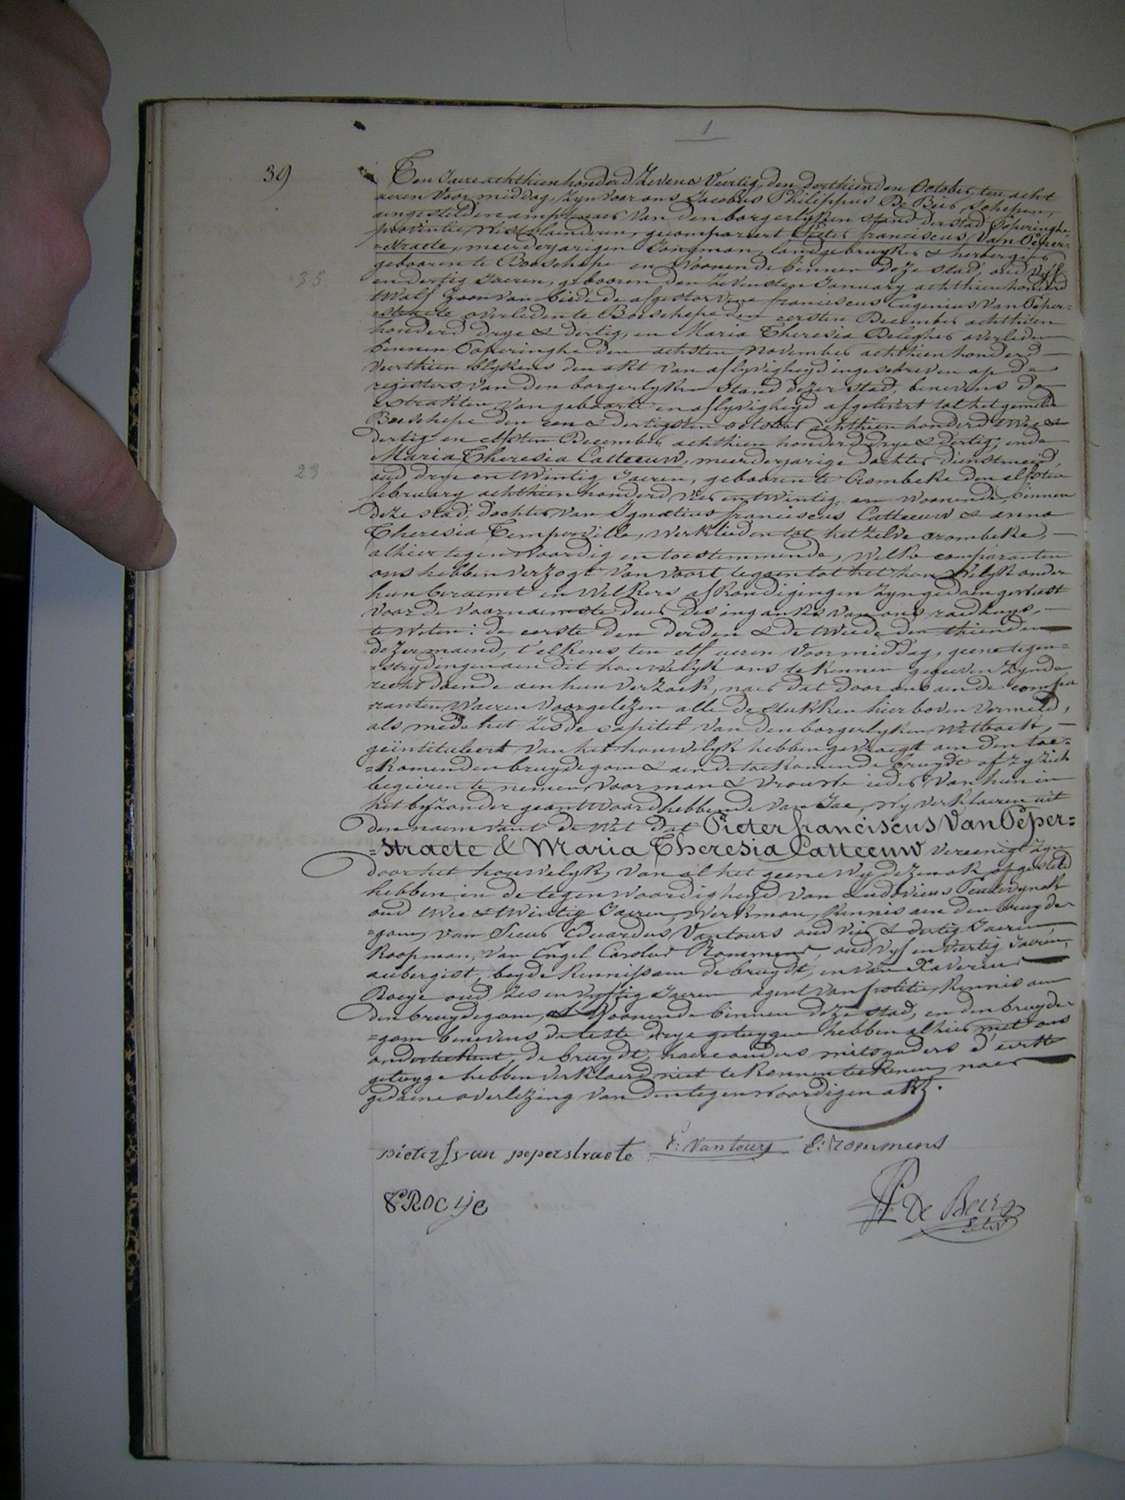 1
39
Ten Jaere achthien honderd Zeven & Veertig, den derthienden October, ten acht
ueren Voor middag, Zyn Voor ons Jacobus Philippus De Beir, Schepen,
Van den borgerlyken stand der stad Poperinghe,
provintie Westvlaenderen, gecompareert Pieter franciscus Van Peper-
=straete, meerderjarigen Jongman, landgebruyker & herbergier
gebooren te Boeschepe en Woonende binnen deze stad, oud vyf
35
en dertig Jaeren, gebooren den Zevensten January achthien honderd
twalf Zoon van beyde de afgestorvene franciscus Eugenius Van Peper-
=straete overleden te Boeschepe den eersten December achthien
honderd drye & dertig, en Maria Theresia Beleghes overleden
binnen Poperinghe den achsten November achthien honderd
veerthien blykens den akt van aflyvigheyd ingeschreven op de
registers van den borgerlyken Stand dezer stad, benevens de
extrakten van geboorte en aflyvigheyd afgelevert tot het gemelde
Boeschepe den een & dertigsten october achthien honderd twee &
dertig en elfsten December achthien honderd drye & dertig; ende
Maria Theresia Catteeuw, meerderjarige dochter dienstmeid,
23
oud drye en twintig Jaeren, gebooren te Crombeke den elfsten
february achthien honderd vier en twintig en Woonende binnen
deze stad, dochter van Ignatius franciscus Catteeuw & anna
Theresia Temperville, werklieden tot het zelve Crombeke,
alhier tegenwoordig en toestemmende, Welke comparanten
ons hebben verzogt van voort tegaen tot het houwelyk onder
hun beraemt en Welkers afkondigingen Zyn gedaen geweest
voor de voornaemste deur des ingangs van ons raedhuys,
te weten: de eerste den derden & de tweede den thienden
dezer maend, telkens ten elf ueren Voor middag, geene tegen-
=strydingen aen dit houwelyk ons te kennen gegeven Zynde
recht doende aen hun verzoek, naer dat door ons aen de compa
=ranten Waeren voorgelezen alle de stukken hier boven vermeld,
als mede het zesde capitel van den borgerlyken Wetboek,
geintituleert van het houwelyk hebben gevraegt aen den toe-
=komenden bruydegom & aen de toekomende bruydt of zy zich
begeeren te nemen voor man & vrouw ieder van hun in
het byzonder geantwoord hebbende van Jae, wy verklaeren uit
den naem van de Wet dat Pieter franciscus Van Peper=
=straete & Maria Theresia Catteeuw vereenigt zyn
door het houwelyk, van al het geene wy dezen akt opgesteld
hebben in de tegenwoordigheyd van Ludovicus
oud twee & twintig Jaeren, Werkman, kennis aen den bruyde
=gom, van Sieur Eduardus Vantours oud vier & dertig Jaeren
Koopman, van Engel Carolus Rommens, oud vyf en veertig Jaeren,
aubergist, beyde kennis aen de bruydt, en van Xaverius
Rocye oud zes en vyftig Jaeren agent van politie, kennis aen
den bruydegom, Woonende binnen deze stad, en den bruyde-
=gom benevens de leste drye getuygen hebben alhier met ons
onderteekent de bruydt, haere ouders mitsgaders d'eerste
getuyge hebben verklaerd niet te konnen teekenen, naer
gedaene overlezing van den tegenwoordigen akt.
pieter f van peperstraete E. Vantours E. Rommens
Rocye
De Beir